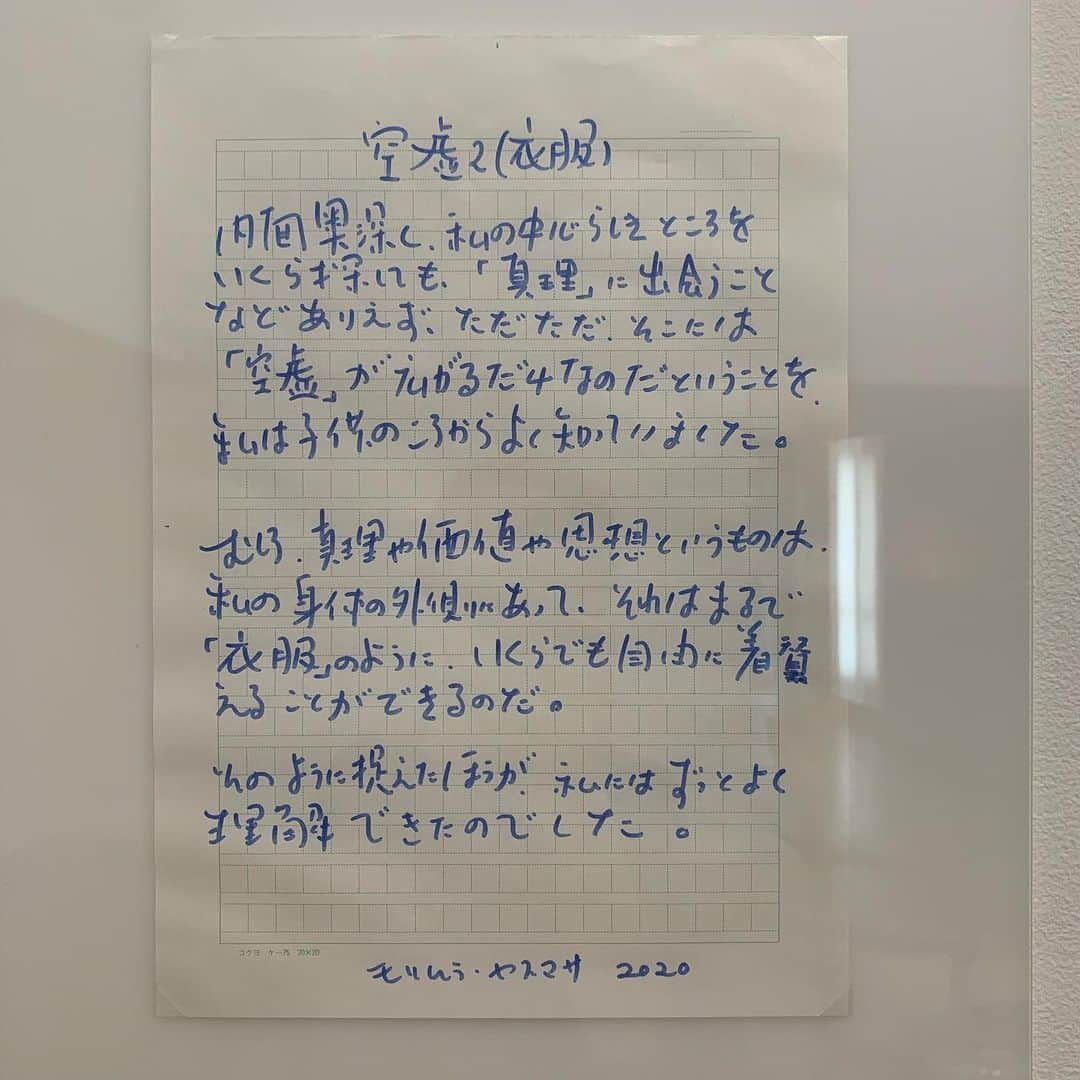 空虚2(衣服)
内面奥深く、私の中心らしきところを
いくら探しても、「真理」に出会うこと
などありえず、ただただ、そこには
「空虚」が広がるだけなのだということを、
私は子供のころからよく知っていました。
むしろ、真理や価値や思想というものは、
私の身体の外側にあって、それはまるで
「衣服」のように、いくらでも自由に着替
えることができるのだ。
そのように捉えたほうが、私にはずっとよく
理解できたのでした。
コクヨ ケー75 20×20
モリムラ・ヤスマサ 2020